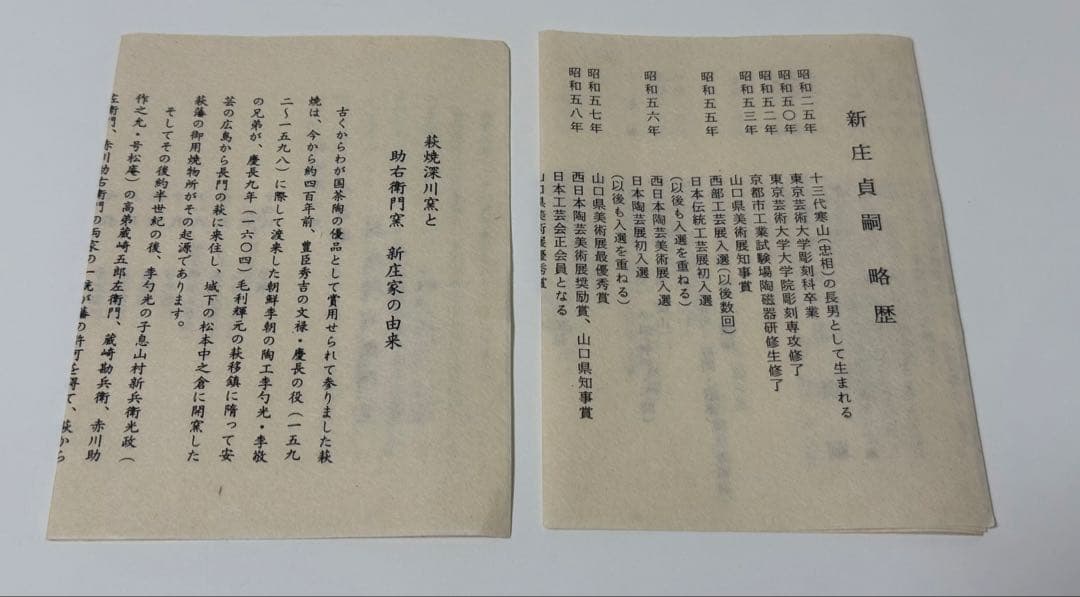 新庄貞嗣 略歴
昭和二五年 十三代寒山(忠相)の長男として生まれる
昭和五〇年 東京芸術大学彫刻科卒業
昭和五二年 東京芸術大学大学院彫刻専攻修了
昭和五三年 京都市工業試験場陶磁器研修生修了
山口県美術展知事賞
昭和五五年 西部工芸展入選(以後数回)
日本伝統工芸展初入選
(以後も入選を重ねる)
昭和五六年 西日本陶芸美術展入選
日本陶芸展初入選
(以後も入選を重ねる)
昭和五七年 山口県美術展最優秀賞
昭和五八年 西日本陶芸美術展奨励賞、山口県知事賞
日本工芸会正会員となる
山口県美術展優秀賞
萩焼深川窯と
助右衛門窯 新庄家の由来
古くからわが国茶陶の優品として賞用せられて参りました萩
焼は、今から約四百年前、豊臣秀吉の文禄・慶長の役(一五九
二〜一五九八)に際して渡来した朝鮮李朝の陶工李勺光・李敬
の兄弟が、慶長九年(一六〇四)毛利輝元の萩移鎮に隋って安
芸の広島から長門の萩に来住し、城下の松本中之倉に開窯した
萩藩の御用焼物所がその起源であります。
そしてその後約半世紀の後、李勺光の子息山村新兵衛光政(
作之允・号松庵)の高弟蔵崎五郎左衛門、蔵崎勘兵衛、赤川助
左衛門、赤川助右衛門の両家の一統が藩の許可を得て、萩から